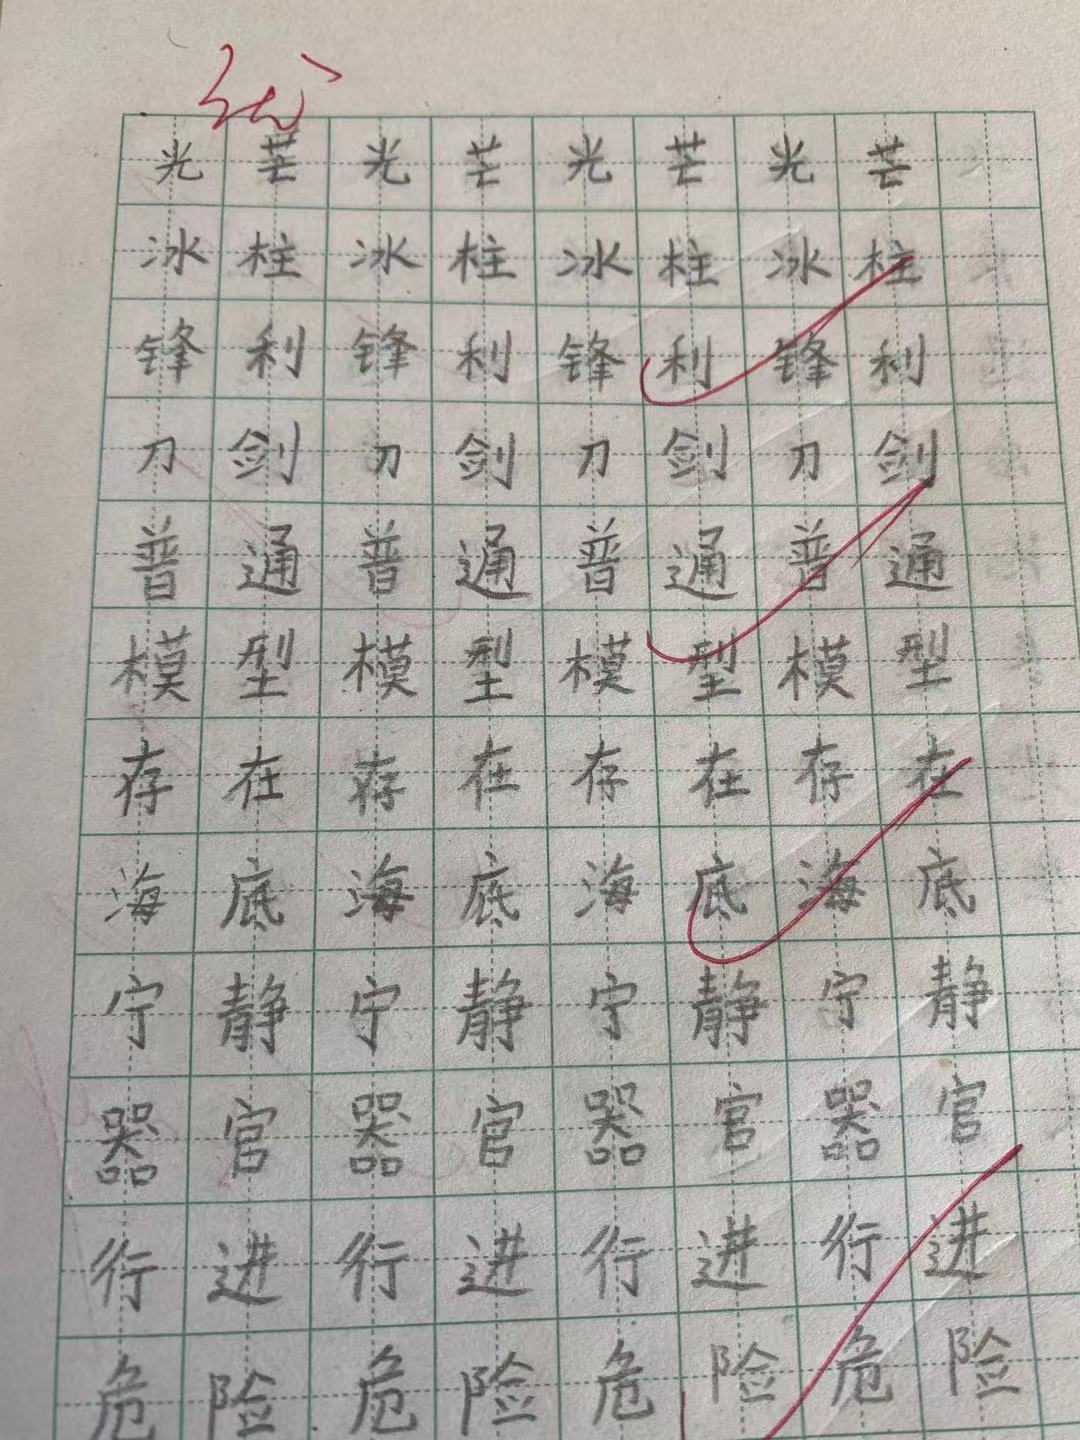 优
光芒光芒光芒光芒
冰柱冰柱冰柱冰柱
锋利锋利锋利锋利
刀剑刀剑刀剑刀剑
普通普通普通普通
模型模型模型模型
存在存在存在存在
海底海底海底海底
宁静宁静宁静宁静
器官器官器官器官
行进行进行进行进
危险危险危险危险